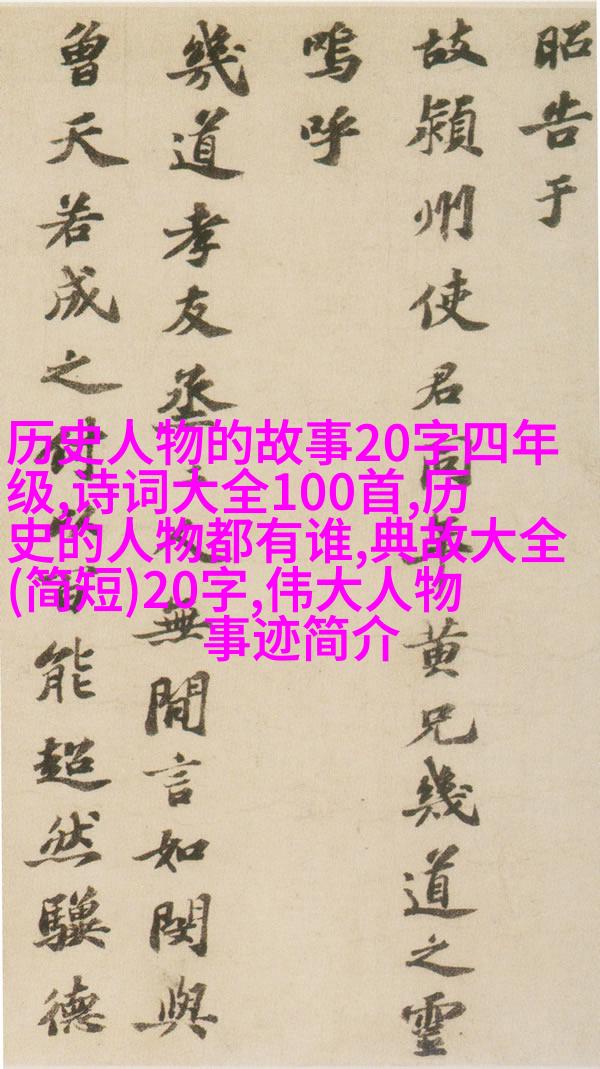 昭告于
故潁州使君同年黄兄幾道之靈
嗚呼
幾道孝友烝無間言如閔與
曾天若成之付以能超然驥德
历史人物的故事20字四年
级,诗词大全100首,历
史的人物都有谁,典故大全
(简短)20字,伟大人物
事迹简介